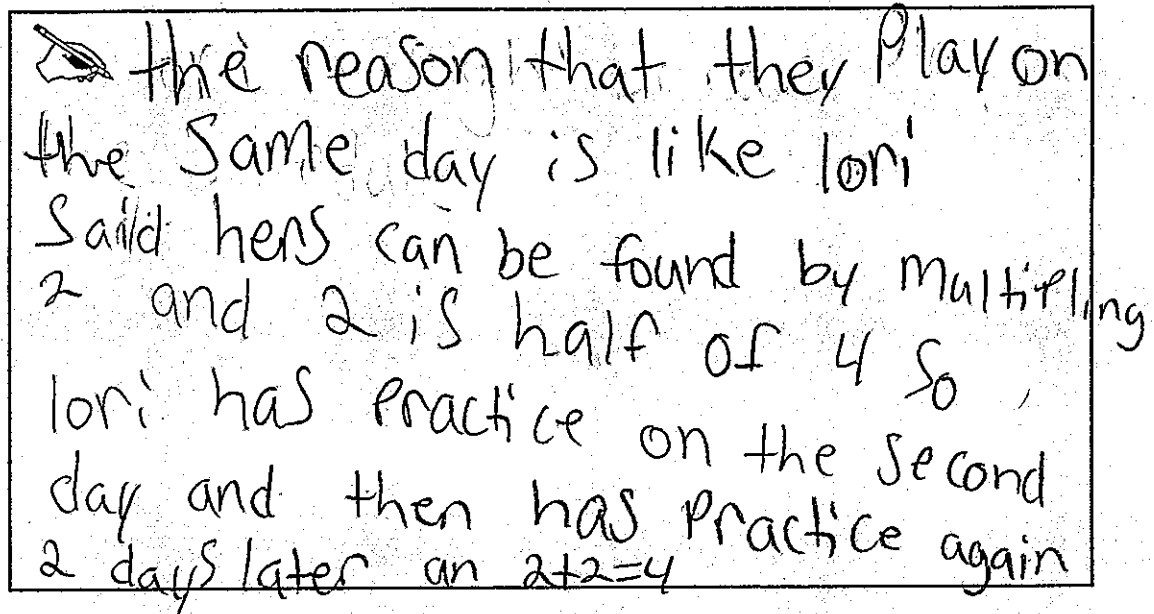 the reason that they Play on
the Same day is like lori
Said hers can be found by Multipling
2 and 2 is half of 4 So
lori has Practice on the Second
day and then has Practice again
2 days later an 2+2=4